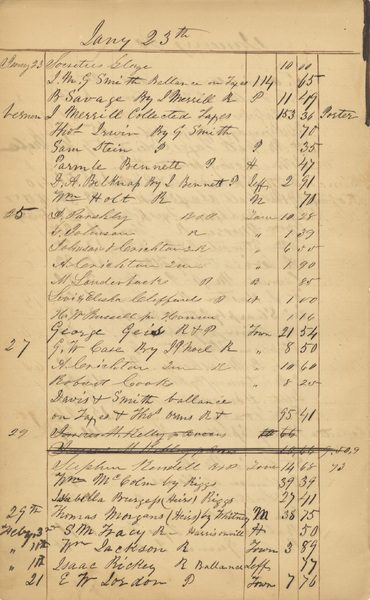 Jany 23th
Januay 23 Societies Lodge 10 00
J. M. G Smith Ballance on Taxes 114 65
B Savage By J Merrill R P 11 47
Vernon J Merrill Collected Taxes 153 36 Poster
Thos Irwin By G Smith 70
Sam Stein P P 35
Parmle Bennett P H 47
D. A. Belknap By J Bennett P Jeff 2 91
Wm Holt R M 70
25 Town 10 28
S. Johnson R " 1 39
Johnson & Crichton 2R " 6
A. Crichton " 1 90
M. Louderback P " 85
P 1 00
H. W. Russell 1 16
George Geis R & P Town 21 54
27 G. W Case By J R " 8 50
A. Crichton " 10 60
Robert Cooks " 8 20
Davis & Smith ballance
on Taxes & Thos R & 95 41
29 H Kelly 66
Stephen Kendell Town 14 68 73
Wm McColm by Riggs 39 39
Isabella Burgess (Heirs) Riggs 27 41
29th Thomas Morgans (Heirs) by Whitney M 38 75
Feby 3rd S M Tracy R Harrisonville H 50
" 11th Wm Jackson R Town 3 89
" 11th Isaac Rickey R Ballance Jeff 77
21 E W P Town 7 76